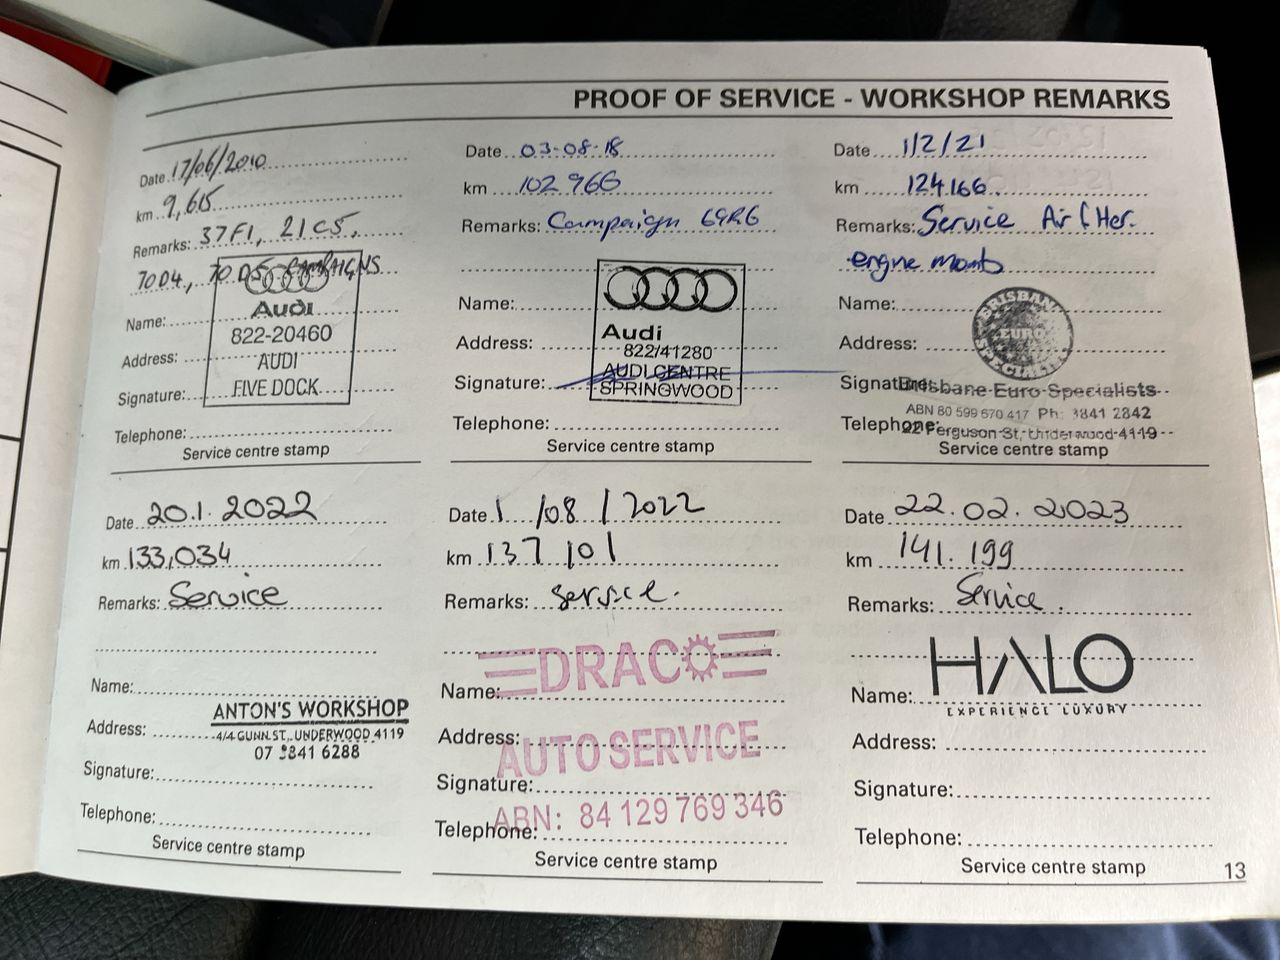 PROOF OF SERVICE - WORKSHOP REMARKS
Date 17/06/2010
km 9,615
Remarks: 37F1, 21C5,
70D4, 70D5 CAMPAIGNS
Audi
822-20460
AUDI
FIVE DOCK
Name:
Address:
Signature:
Telephone:
Service centre stamp
Date 03-08-18
km 102966
Remarks: Campaign 69R6
Audi
822/41280
AUDI CENTRE
SPRINGWOOD
Name:
Address:
Signature:
Telephone:
Service centre stamp
Date 1/2/21
km 124166
Remarks: Service Air
engine
BRISBANE
EURO
SPECIALISTS
Brisbane Euro Specialists
ABN 80 599 670 417 Ph: 3841 2842
22 Ferguson St, Underwood 4119
Name:
Address:
Signature:
Telephone:
Service centre stamp
Date 20.1.2022
km 133,034
Remarks: Service
Name:
ANTON'S WORKSHOP
4/4 GUNN ST., UNDERWOOD 4119
07 3841 6288
Address:
Signature:
Telephone:
Service centre stamp
Date 1/08/2022
km 137 101
Remarks: service.
DRACO
AUTO SERVICE
ABN: 84 129 769 346
Name:
Address:
Signature:
Telephone:
Service centre stamp
Date 22.02.2023
km 141.199
Remarks: Service.
HALO
EXPERIENCE LUXURY
Name:
Address:
Signature:
Telephone:
Service centre stamp
13